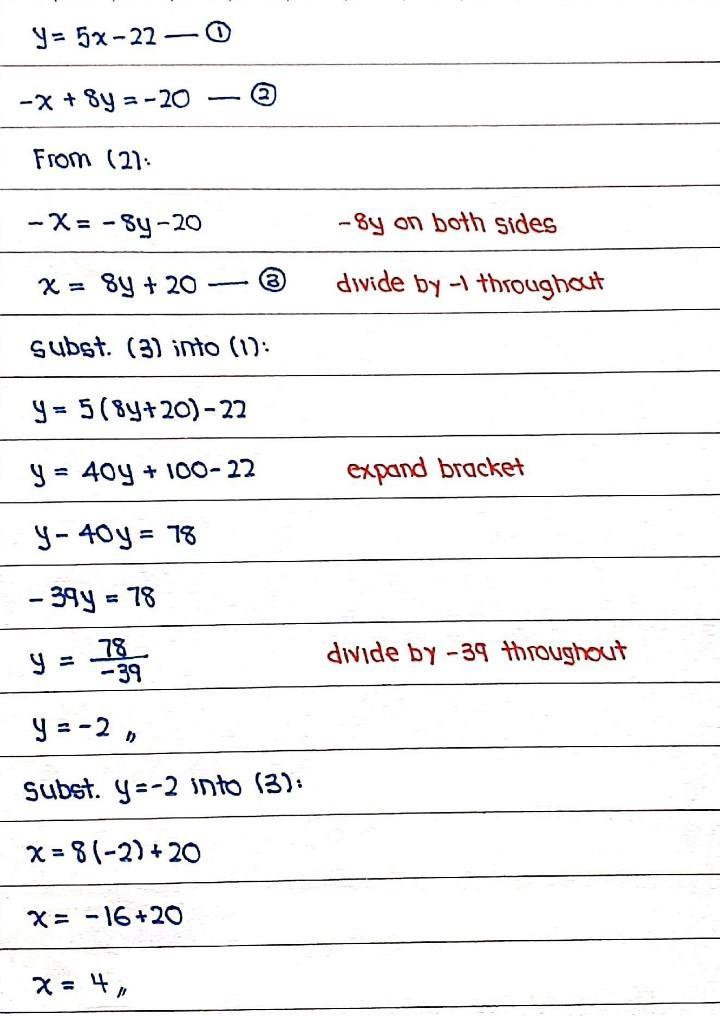 y = 5x - 22 — ①
-x + 8y = -20 — ②
From (2):
-x = -8y - 20 -8y on both sides
x = 8y + 20 — ③ divide by -1 throughout
subst. (3) into (1):
y = 5(8y + 20) - 22
y = 40y + 100 - 22 expand bracket
y - 40y = 78
-39y = 78
y = 78/-39 divide by -39 throughout
y = -2 〃
subst. y = -2 into (3):
x = 8(-2) + 20
x = -16 + 20
x = 4 〃